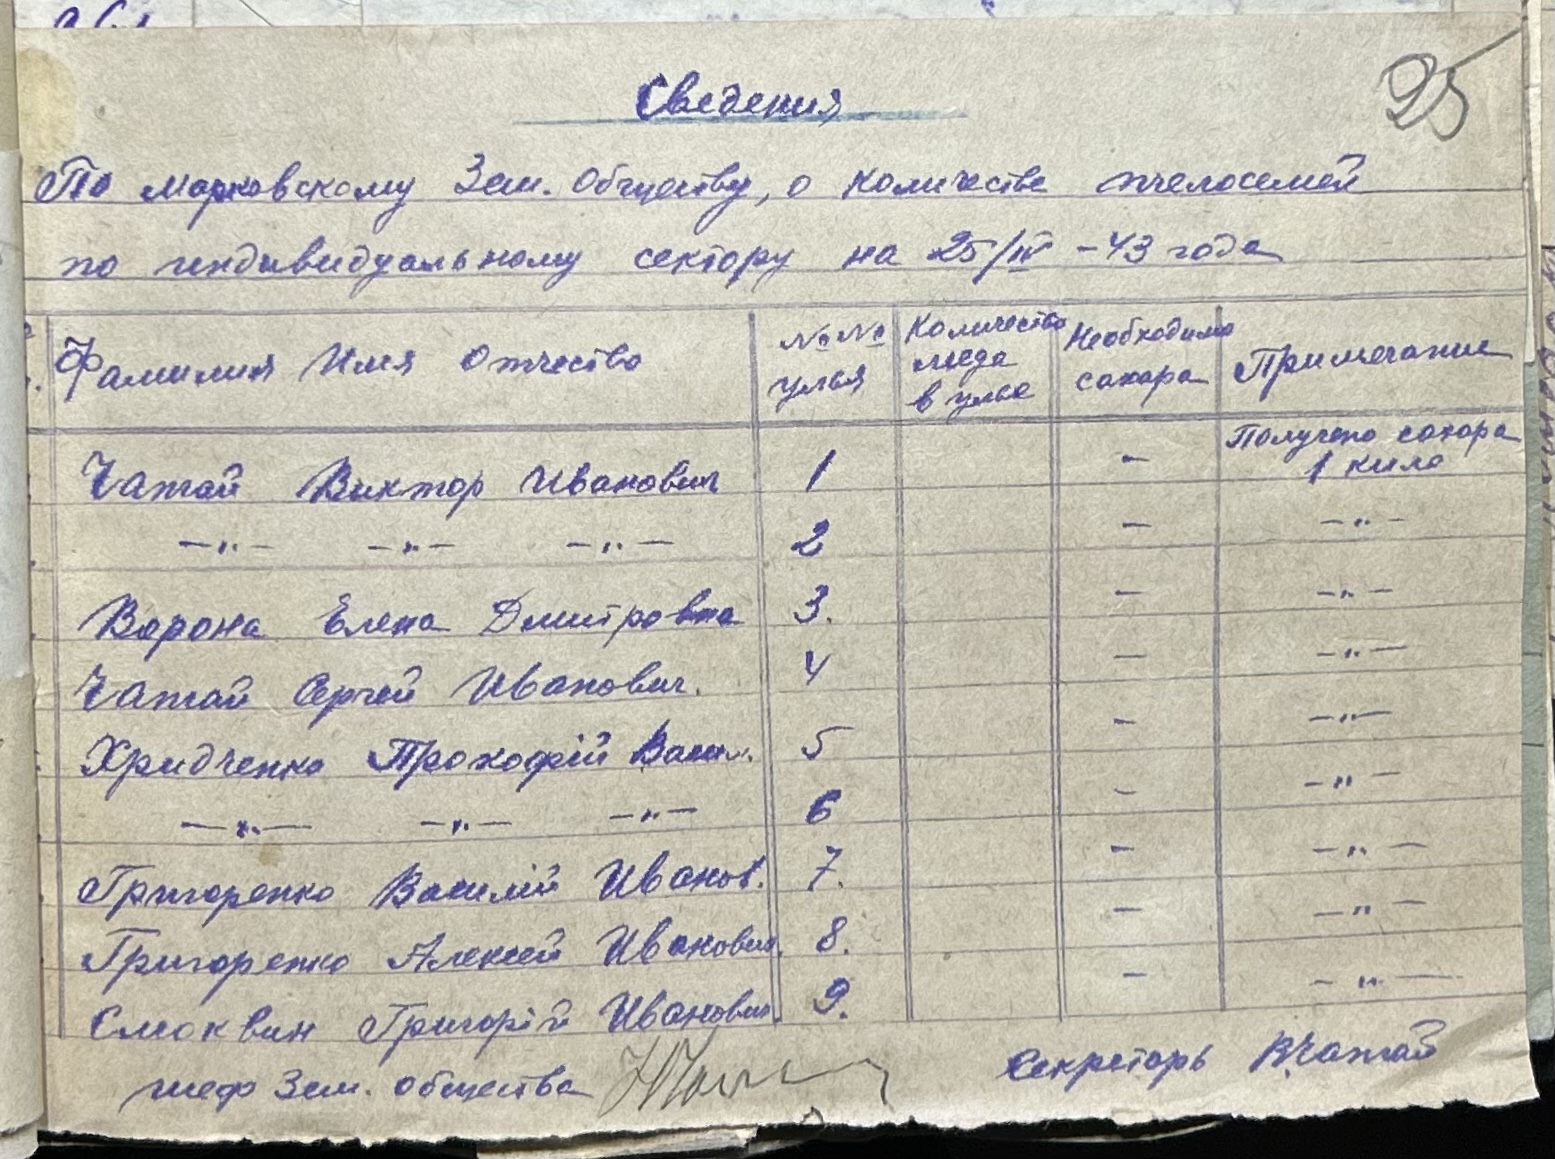 95
Сведения
По Марковскому Зем. Обществу, о количестве пчелосемей
по индивидуальному сектору на 25/IV -43 года
Фамилия Имя Отчество | №№ улья | Количество меда в улье | Необходимо сахара | Примечание
Чатай Виктор Иванович | 1 | | - | Получено сахара 1 кило
—„— —„— —„— | 2 | | - | —„—
Ворона Елена Дмитровна | 3. | | - | —„—
Чатай Сергей Иванович. | 4 | | - | —„—
Хридченко Прокофій Васил. | 5 | | - | —„—
—„— —„— —„— | 6 | | - | —„—
Григоренко Василій Иванов. | 7. | | - | —„—
Григоренко Алексей Иванович. | 8. | | - | —„—
Смоквин Григорій Иванович. | 9. | | - | —„—
шеф Зем. общества
Секретарь В.Чатай